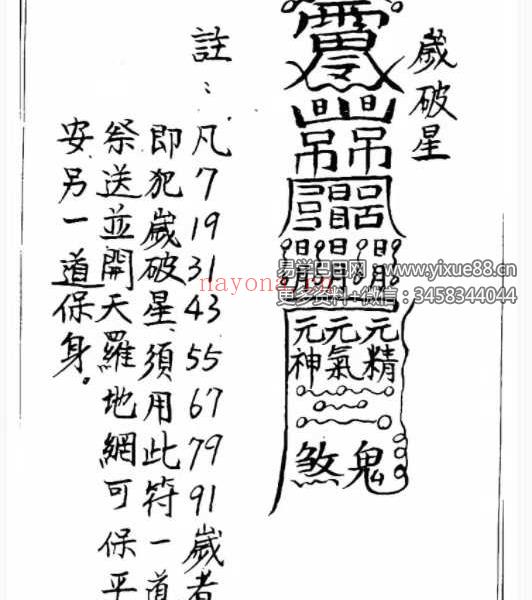 歲破星
雷令
日日
吊吊
日日日
月月
元精
元氣
元神
鬼
煞
註：
凡7 19 31 43 55 67 79 91歲者
即犯歲破星須用此符一道
祭送並開天羅地網可保平
安另一道保身。
易学巴巴网：www.yixue88.cn
更多资料+微信：3458344044
nayona.